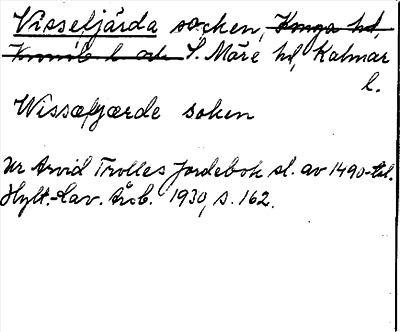 Vissefjärda socken, Konga hd,
Kronob. l. och S. Möre hd, Kalmar
l.
Wissæfgærde soken
Ur Arvid Trolles Jordebok sl. av 1490-tal.
Hylt.-Cav. Årsb. 1930, s. 162.